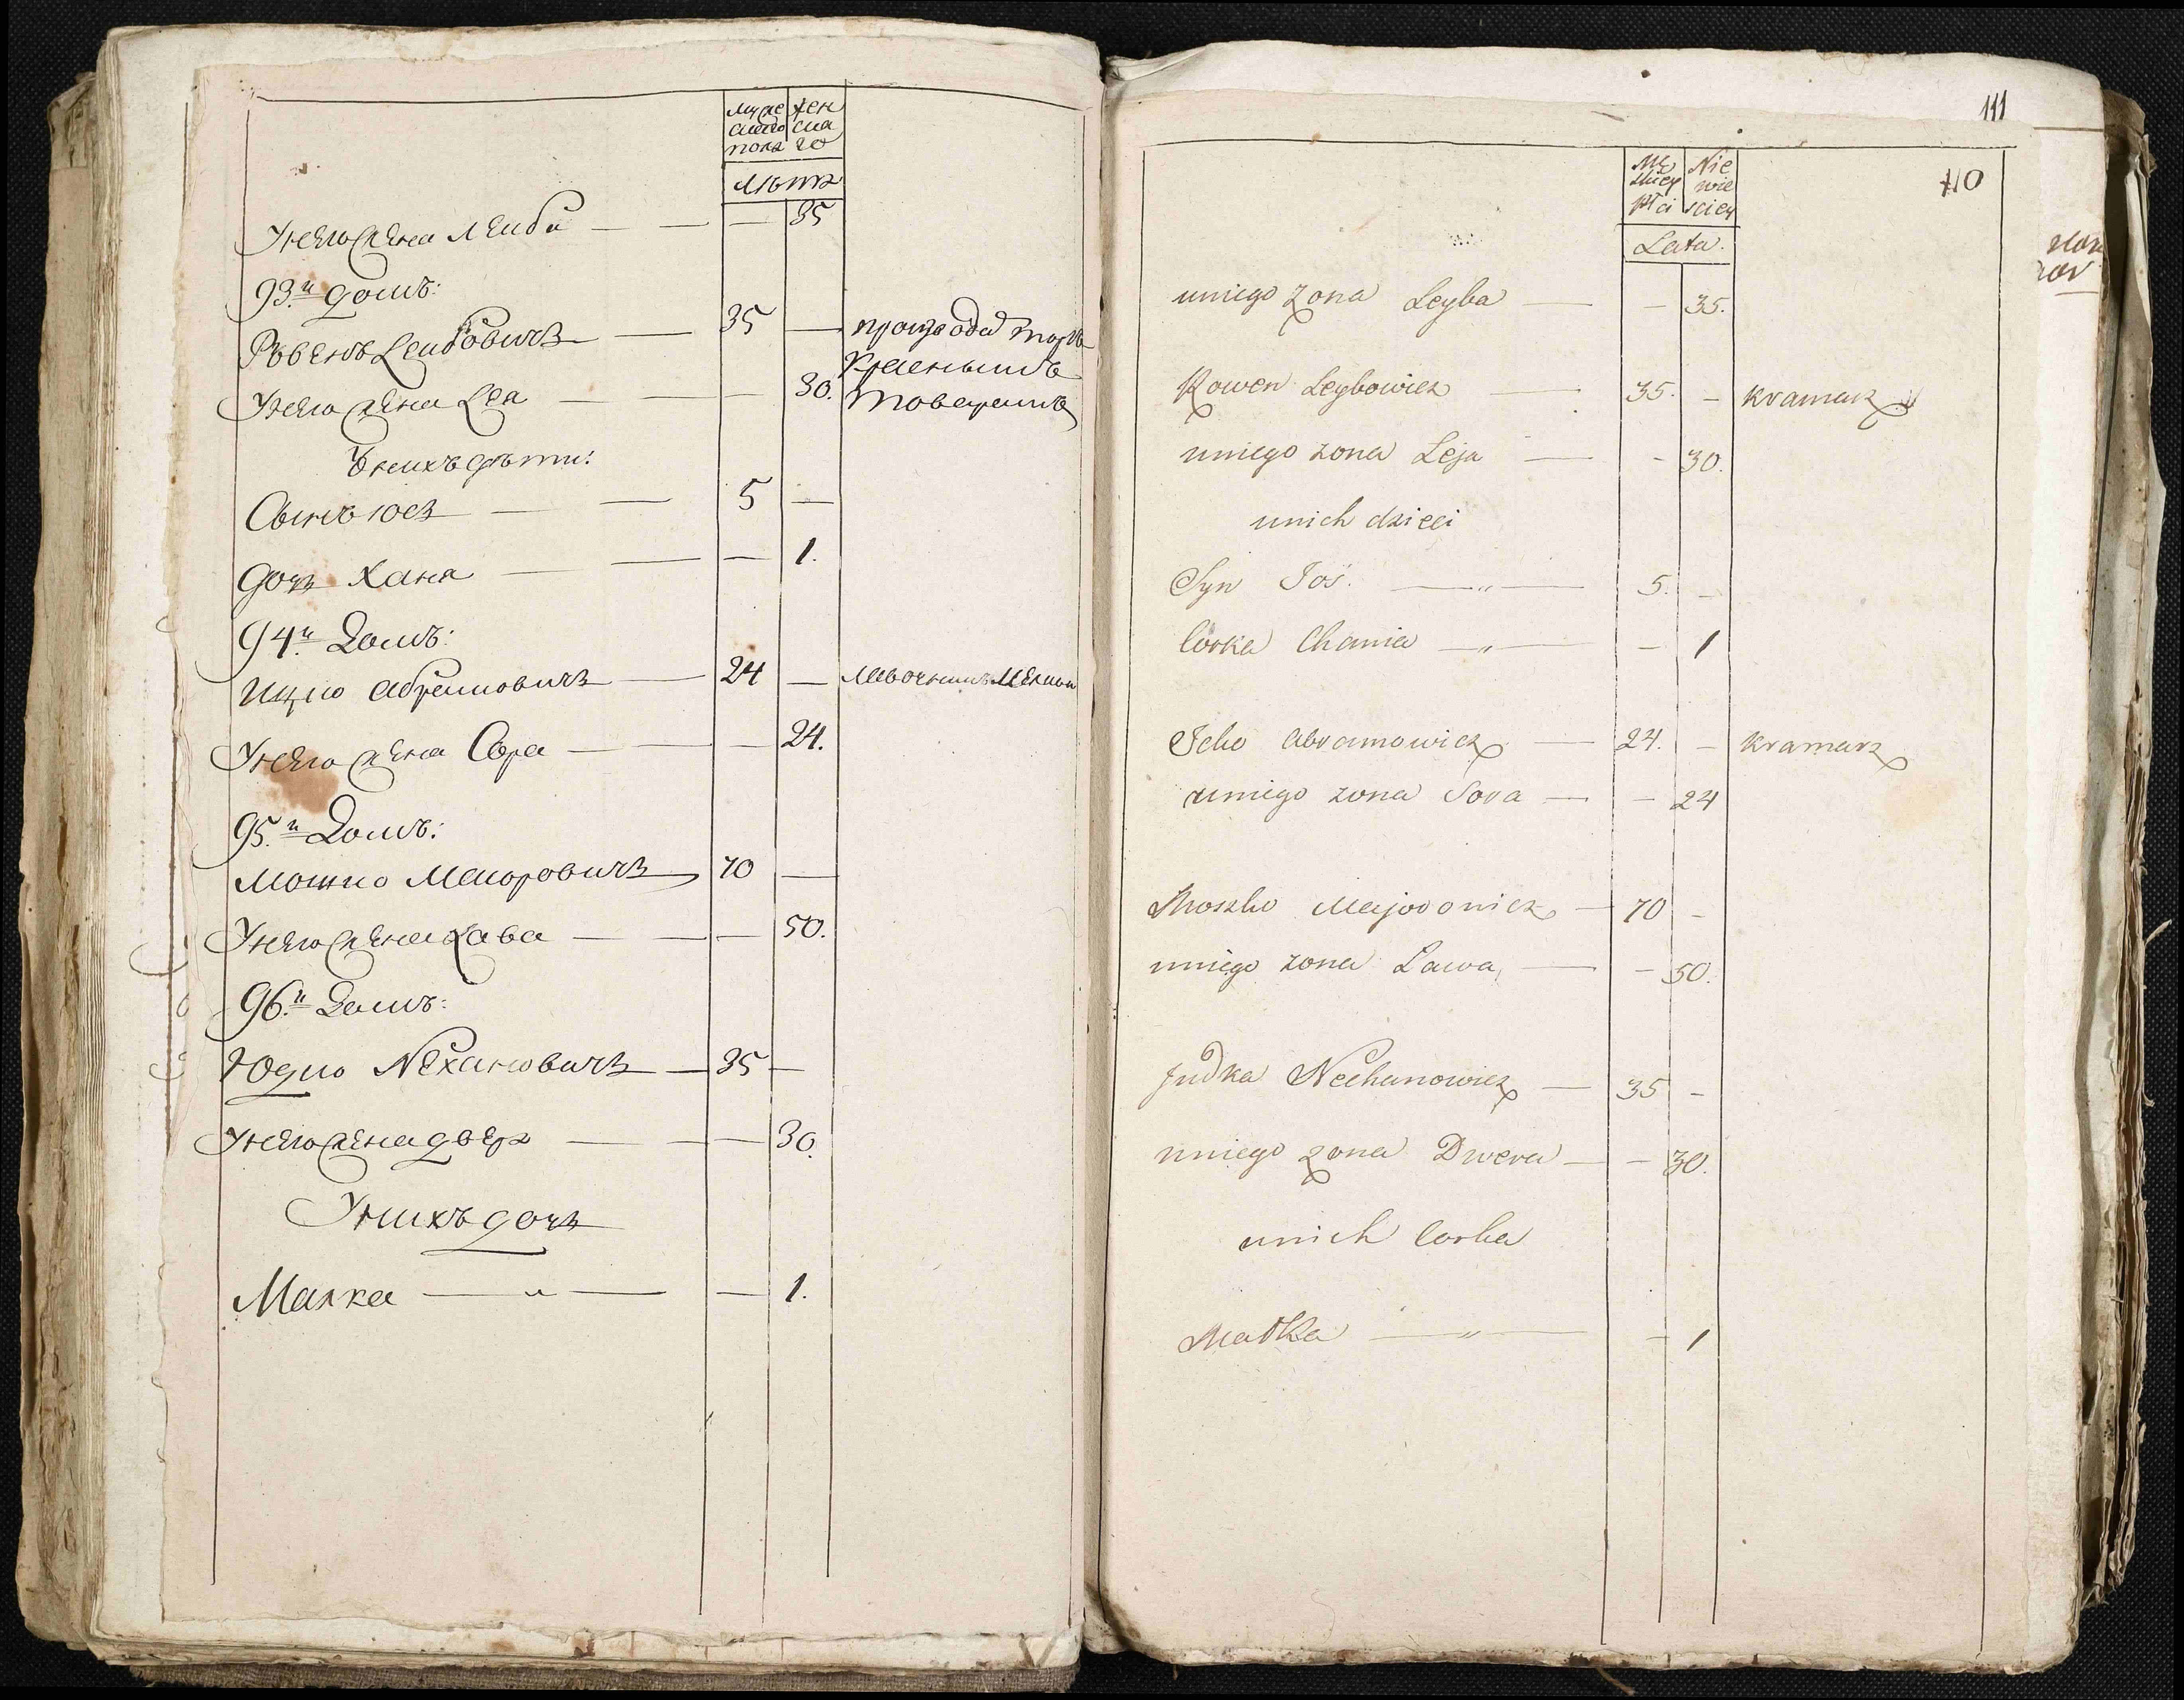 муже жен
скаго ска
пола го
лѣтъ
У него жена Леиба — — — 35
93.й домъ:
Рѣвенъ Леибовичъ — 35 — производ торгъ
красными
У него жена Леа — — — 30. товарами
У нихъ дѣти:
Сынъ Іосъ — — 5 —
Дочь Хана — — — 1.
94.й Домъ:
Ицко Абрамовичъ — 24 — лавочник
У него жена Сора — — — 24.
95.й Домъ:
Мошко Маиоровичъ 70 —
У него жена Лава — — — 50.
96.й Домъ:
Юдко Нехановичъ — 35 —
У него жена Двера — — — 30.
У нихъ дочь
Малка — " — — 1.
111
110
Mę Nie
skiey wie
płci sciey
Lata.
u niego żona Leyba — — 35.
Rowen Leybowicz — 35. — kramarz
u niego zona Leja — — 30.
u nich dzieci
Syn Joś. — " — 5. —
Corka Chania — " — — 1
Icko Abramowicz — 24. — kramarz
u niego zona Sora — — 24
Moszko Majorowicz — 70 —
u niego zona Lawa — — 50.
Judka Nechanowicz — 35 —
u niego żona Dwera — — 30.
u nich Corka
Małka — " — — 1